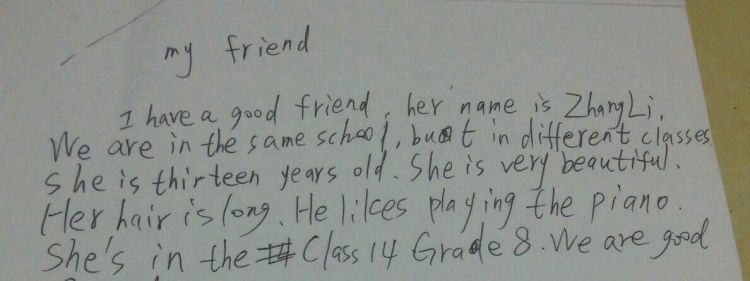 my friend
I have a good friend, her name is ZhangLi.
We are in the same school, but in different classes.
she is thirteen years old. She is very beautiful.
Her hair is long. He likes playing the piano.
She's in the Class 14 Grade 8. We are good